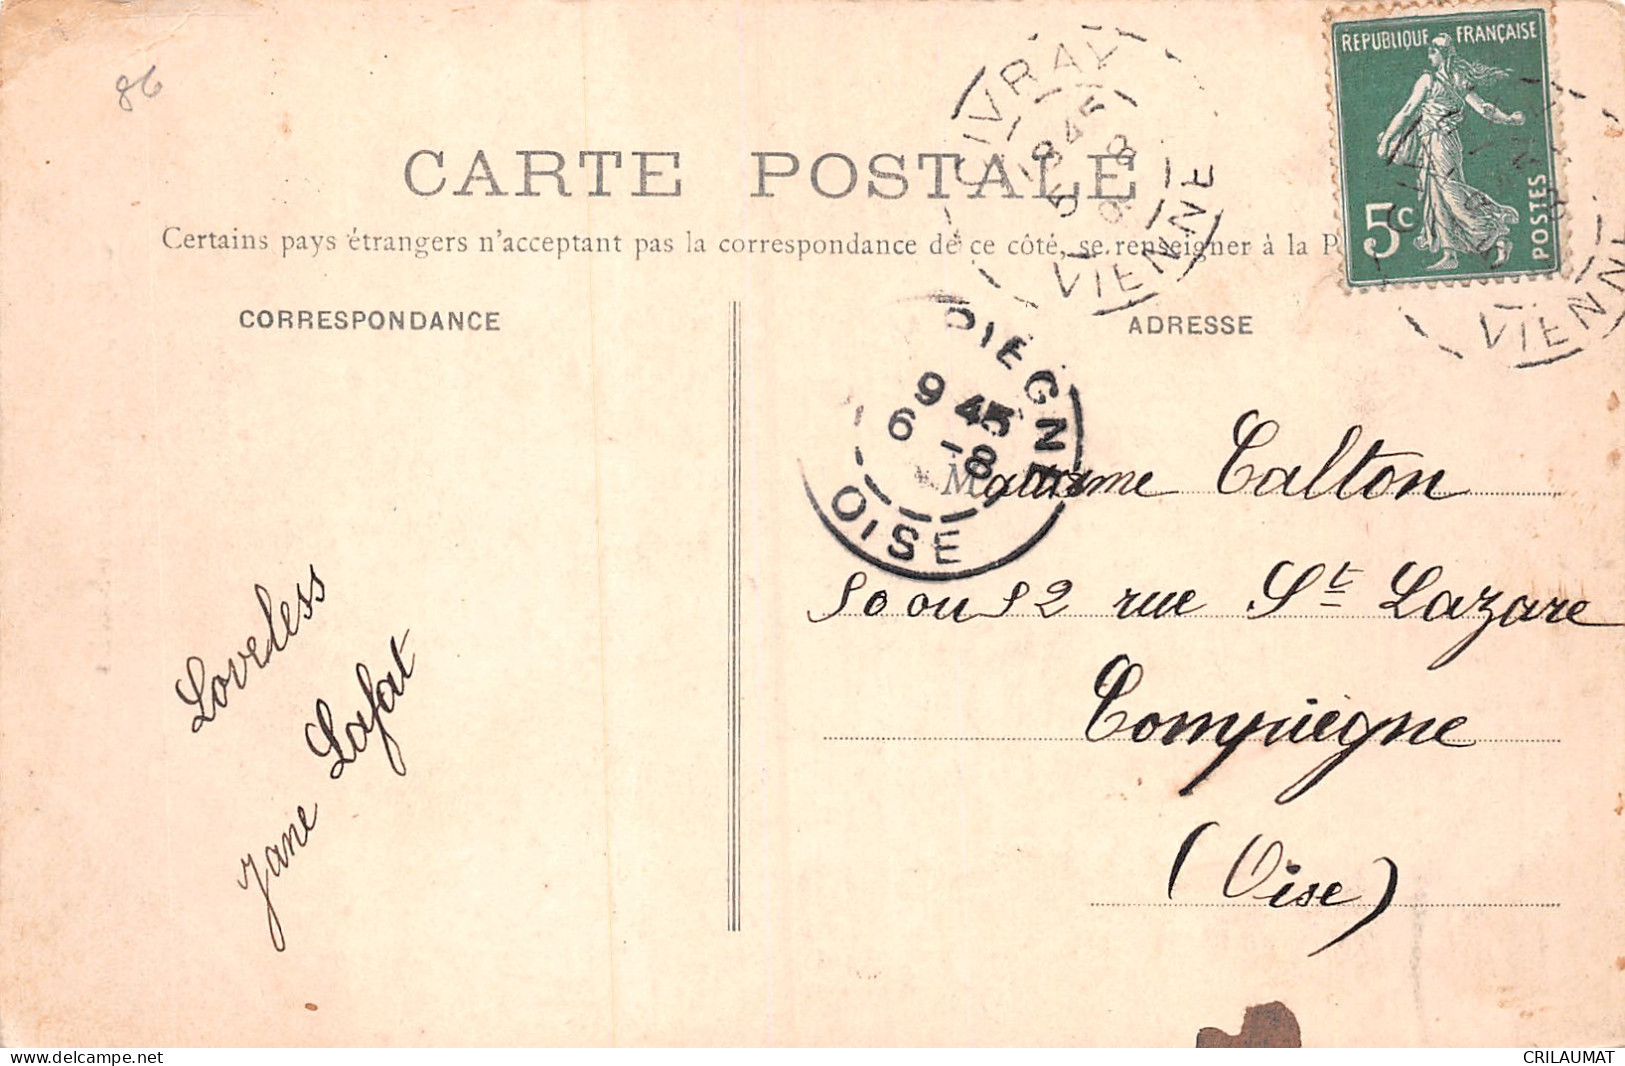 86
REPUBLIQUE FRANÇAISE
5c
POSTES
CIVRAY
18 45
5 8
VIENNE
VIENNE
CARTE POSTALE
Certains pays étrangers n'acceptant pas la correspondance de ce côté, se renseigner à la P
CORRESPONDANCE
ADRESSE
PIEGNE
9 45
6 -8
OISE
Madame Talton
50 ou 52 rue St Lazare
Compiègne
(Oise)
Loveless
Jane Lafat
www.delcampe.net
CRILAUMAT